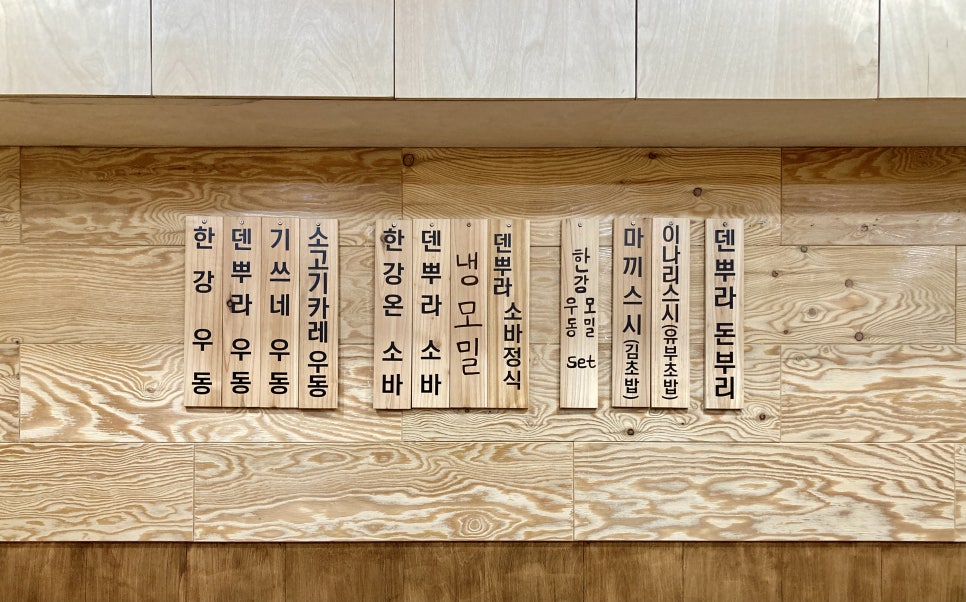 한강 우동
덴뿌라 우동
기쓰네 우동
소고기카레 우동
한강온 소바
덴뿌라 소바
냉모밀
덴뿌라 소바정식
한강 우동 모밀 set
마끼스시(김초밥)
이나리스시(유부초밥)
덴뿌라 돈부리